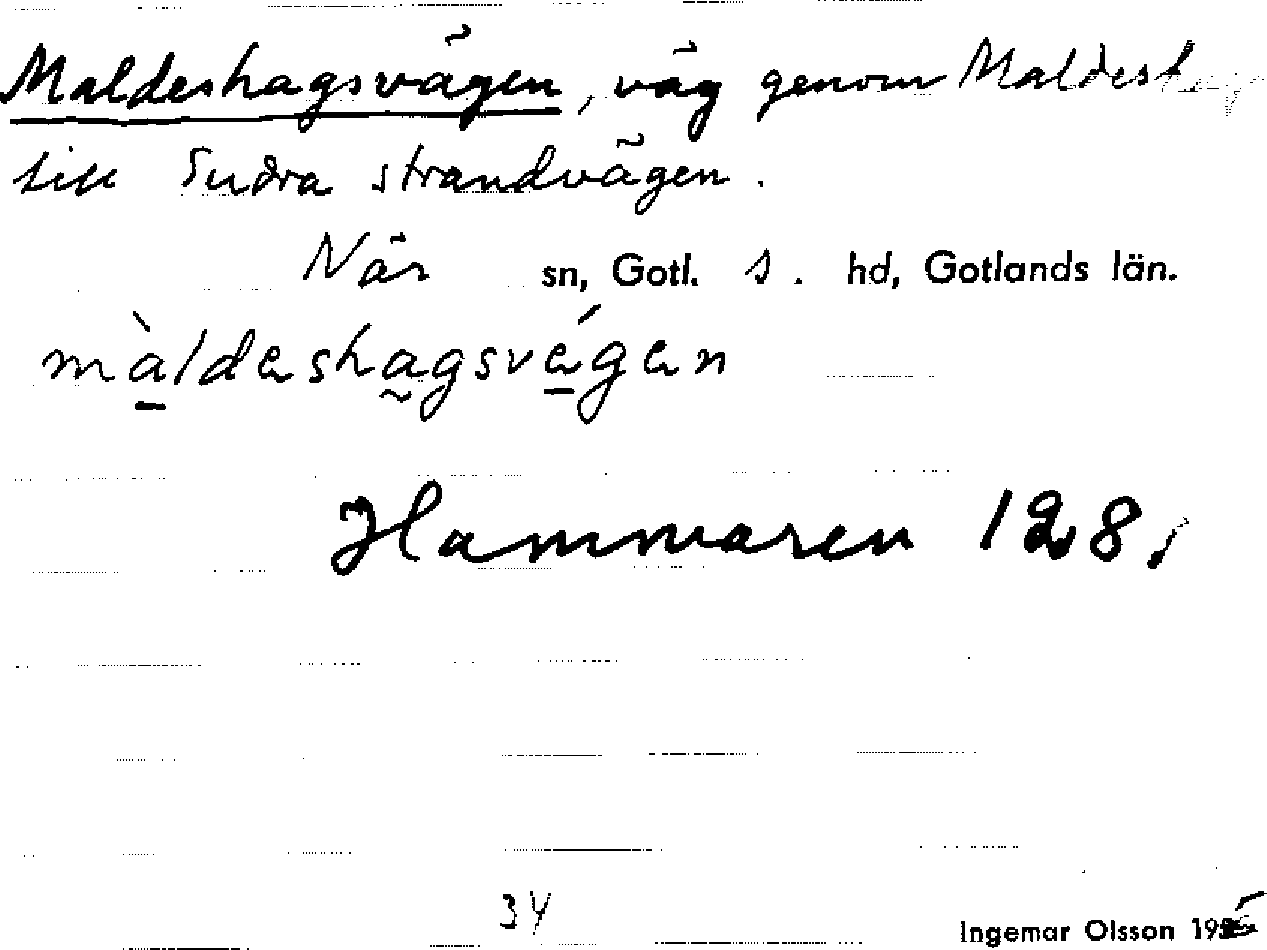 Maldeshagsvägen, väg genom Maldeshag
till Sudra strandvägen.
När sn, Gotl. s. hd, Gotlands län.
màldeshagsvégen
Hammaren 128,
34
Ingemar Olsson